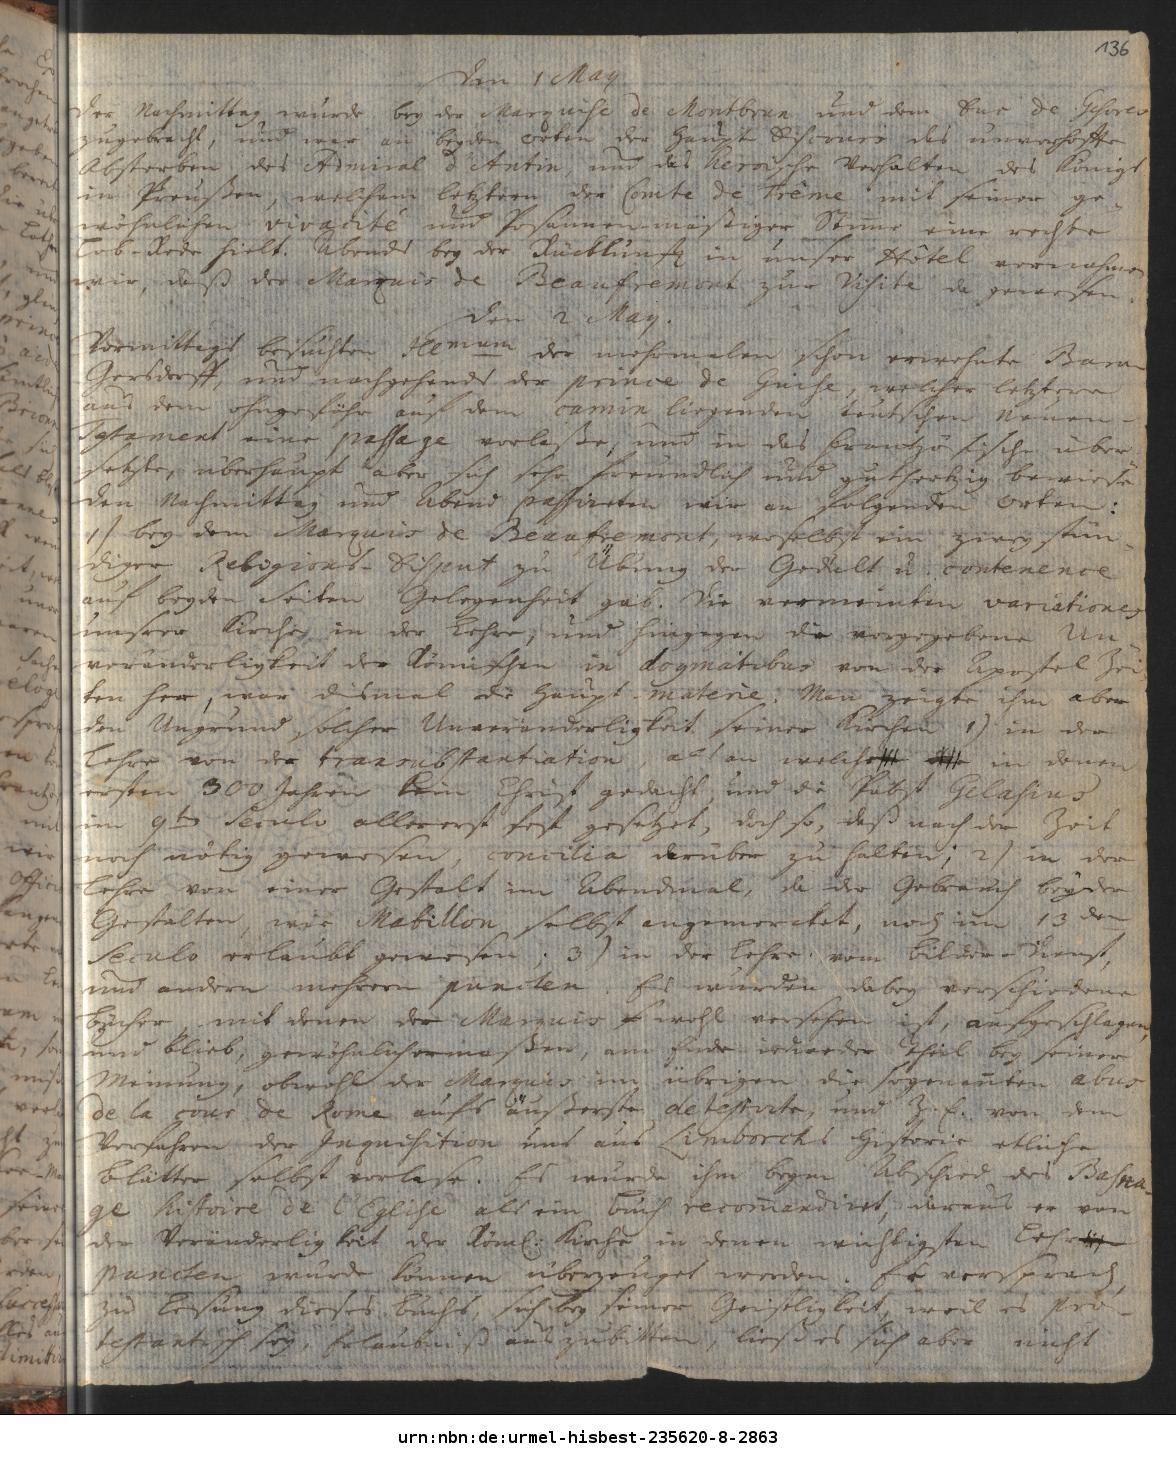 136
Den 1 May
Der Nachmittag wurde bey der Marquise de Montbrun und dem Duc de Gesvres
zugebracht, und war an beyden orten der Haupt Discours das unverhoffte
Absterben des Admiral d'Antin, und das heroische Verhalten des Königs
in Preußen, welchem letztern der Comte de Trême mit seiner ge-
wöhnlichen vivacité und Posaunen-mäßiger Stime eine rechte
Lob-Rede hielt. Abends bey der Rückkunft in unser Hôtel vernahmen
wir, daß der Marquis de Beaufremont zur Visite da gewesen.
Den 2 May.
Vormittags besuchten Illmum der mehrmalen schon erwehnte Baron
Gersdorff, und nachgehends der prince de Guise, welcher letztere
aus dem ohngefehr auf dem Camin liegenden teutschen Neuen-
Testament eine passage vorlaße, und in das Frantzösische über-
setzte, überhaupt aber sich sehr freundlich und guthertzig bewiese
Den Nachmittag und Abend passirten wir an folgenden orten:
1) bey dem Marquis de Beaufremont, woselbst ein zwey stün-
diger Religions-Disput zu Übung der Gedult u. contenence
auf beyden seiten Gelegenheit gab. Die vermeinten variationes
unsrer Kirche in der Lehre, und hingegen die vorgegebene Un-
veränderligkeit der Römischen in dogmatibus von der Apostel Zei-
ten her, war dismal die Haupt-materie. Man zeigte ihm aber
den Ungrund solcher Unveränderligkeit seiner Kirchen 1) in der
Lehre von der transubstantiation, als an welche in denen
ersten 300 Jahren kein Christ gedacht, und die Pabst Gelasius
im 9ten Seculo allererst fest gesetzet, doch so, daß nach der Zeit
noch nötig gewesen, concilia darüber zu halten; 2) in der
Lehre von einer Gestalt im Abendmal, da der Gebrauch beyder
Gestalten, wie Mabillon selbst angemercket, noch im 13 den
Seculo erlaubt gewesen. 3) in der Lehre vom Bilder-Dienst,
und andern mehrern puncten. Es wurden dabey verschiedene
bücher, mit denen der Marquis wohl versehen ist, aufgeschlagen,
und blieb, gewöhnlichermaßen, am Ende ieweder Theil bey seiner
Meinung, obwohl der Marquis im übrigen die sogenañten abus
de la cour de Rome aufs äußerste detestirte, und Z. E. von dem
Verfahren der Inquisition uns aus Limborchs Historie etliche
blätter selbst vorlase. Es wurde ihm beym Abschied des Basna-
ge histoire de l'Eglise als ein buch recomandiret, daraus er von
der Veränderligkeit der Röml. Kirche in denen wichtigsten Lehr
puncten wurde können überzeuget werden. Er versprach,
zu Lesung dieses buchs, sich bey seiner Geistligkeit, weil es pro-
testantisch sey, Erlaubniß auszubitten, ließ es sich aber nicht
urn:nbn:de:urmel-hisbest-235620-8-2863